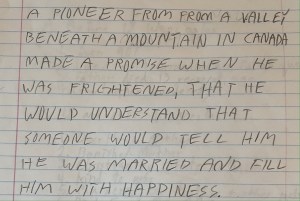 A PIONEER FROM FROM A VALLEY
BENEATH A MOUNTAIN IN CANADA
MADE A PROMISE WHEN HE
WAS FRIGHTENED, THAT HE
WOULD UNDERSTAND THAT
SOMEONE WOULD TELL HIM
HE WAS MARRIED AND FILL
HIM WITH HAPPINESS.